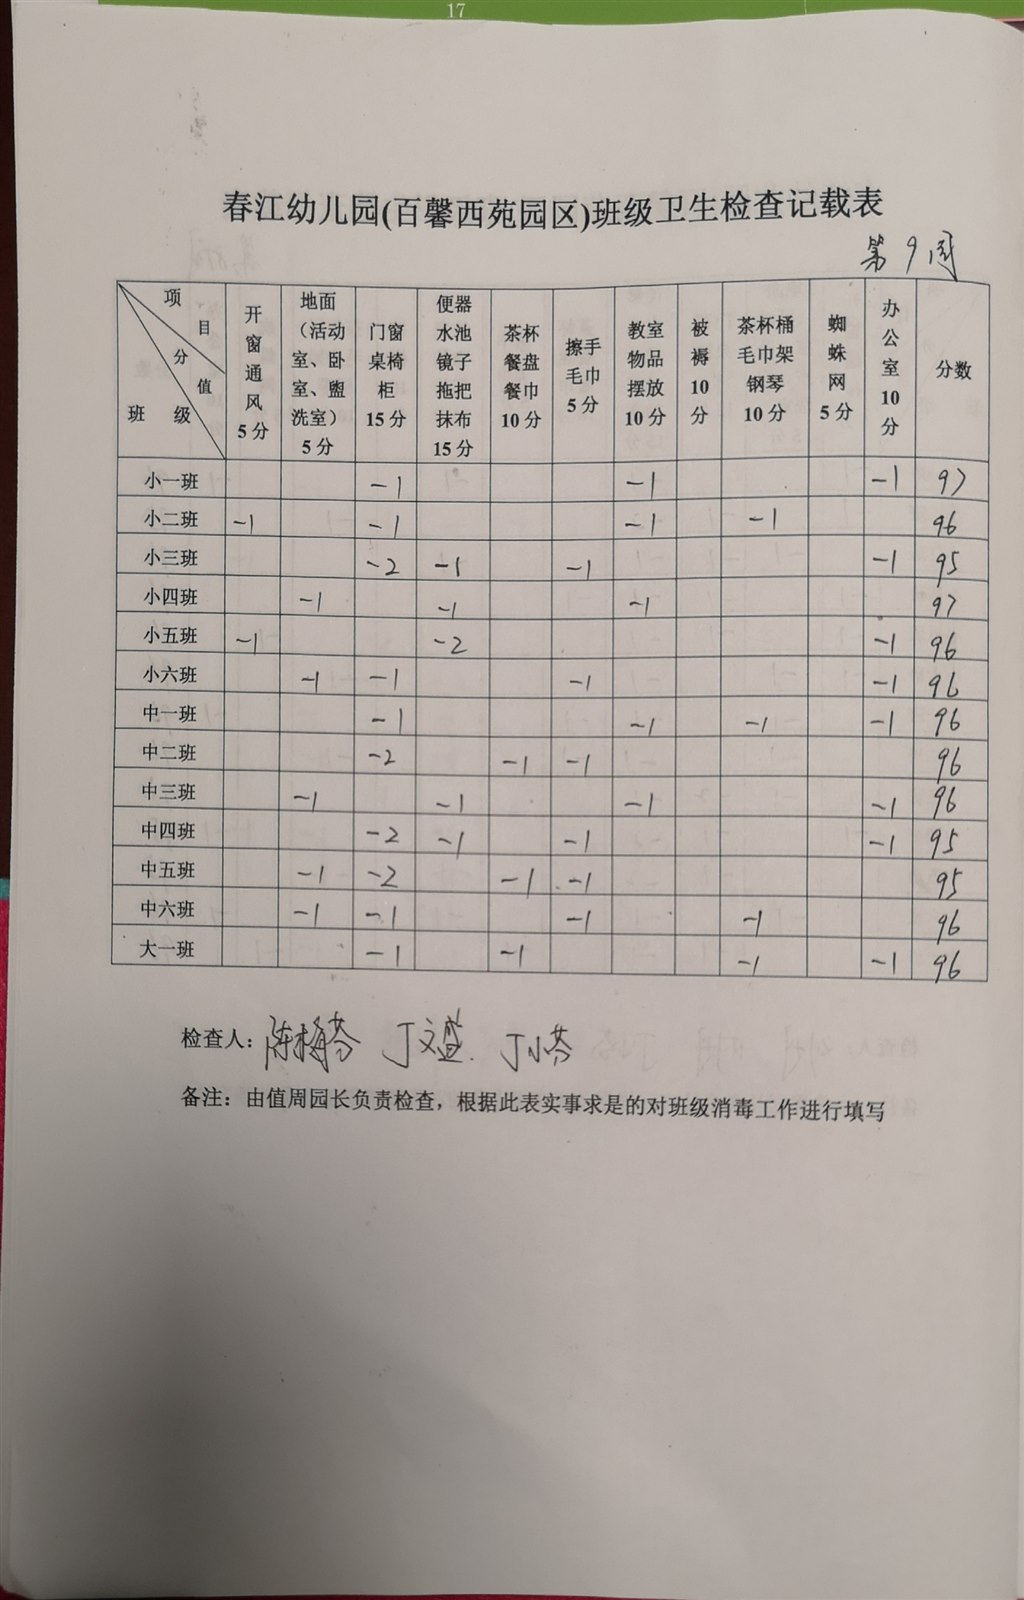 17
春江幼儿园(百馨西苑园区)班级卫生检查记载表
第9周
项目 分值 班级 开窗通风5分 地面（活动室、卧室、盥洗室）5分 门窗桌椅柜15分 便器水池镜子拖把抹布15分 茶杯餐盘餐巾10分 擦手毛巾5分 教室物品摆放10分 被褥10分 茶杯桶毛巾架钢琴10分 蜘蛛网5分 办公室10分 分数
小一班 -1 -1 -1 97
小二班 -1 -1 -1 -1 96
小三班 -2 -1 -1 -1 95
小四班 -1 -1 -1 97
小五班 -1 -2 -1 96
小六班 -1 -1 -1 -1 96
中一班 -1 -1 -1 -1 96
中二班 -2 -1 -1 96
中三班 -1 -1 -1 -1 96
中四班 -2 -1 -1 -1 95
中五班 -1 -2 -1 -1 95
中六班 -1 -1 -1 -1 96
大一班 -1 -1 -1 -1 96
检查人：陈梅芬 丁文盛 丁小芬
备注：由值周园长负责检查，根据此表实事求是的对班级消毒工作进行填写